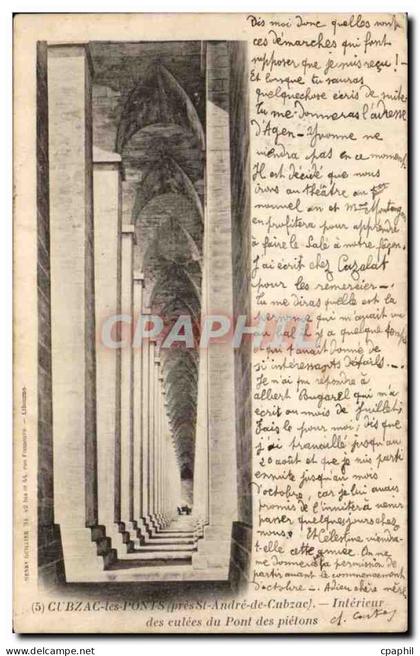 Dis moi donc quelles sont
ces démarches qui font
supposer que je suis reçu ! -
Et lorsque tu sauras
quelquechose écris de suite
Tu me donneras l'adresse
d'Agen - Yvonne ne
viendra pas en ce moment
Il est décidé que nous
irons au théâtre au 1er
nouvel an et Mme
en profitera pour apprendre
à faire le Salé à notre façon.
J'ai écrit chez Cazalat
pour les remercier -
Tu me diras quelle est la
personne qui m'avait vu
au bal il y a quelque temps
et qui t'avait donné de
si intéressants détails. -
Je n'ai pu répondre à
albert Bugarel qui m'a
écrit au mois de Juillet;
fais le pour moi; dis que
j'ai travaillé jusqu'au
20 août et que je suis parti
ensuite jusqu'au mois
d'octobre, car je lui avais
promis de l'inviter à venir
passer quelques jours chez
nous. Et Célestine viendra-
t-elle cette année. On ne
me donnera la permission de
partir avant le commencement
d'octobre - Adieu chère mère
(5) CUBZAC-les-PONTS (près St-André-de-Cubzac). — Intérieur
des culées du Pont des piétons
HENRY GUILLIER, 42 bis et 44, rue Fonneuve — Libourne
CPAPHIL
www.cpaphil.com